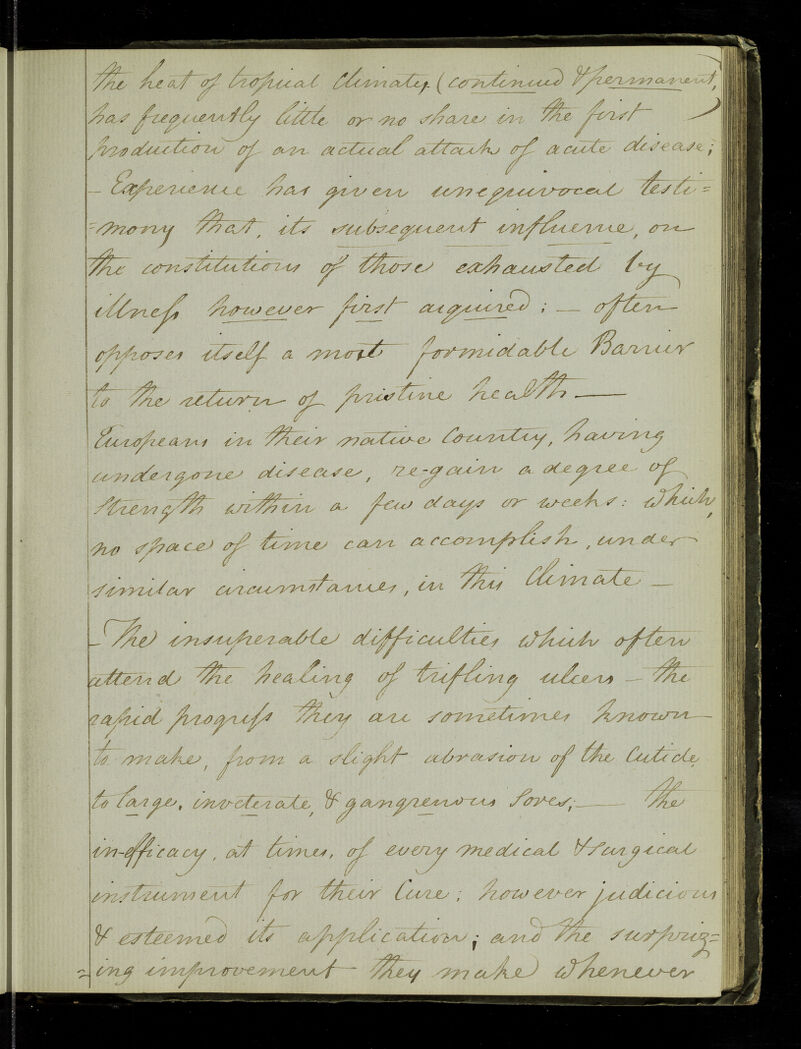 the heat of tropical Climates, (continued & permanent,)
has frequently little or no share in the first
production of an actual attack of acute disease;
– Experience has given unequivocal testi=
=mony that, its subsequent influence, on
the constitutions of those exhausted by
illness however first acquired; – often
opposes itself a most formidable Barrier
to the return of pristine health —
Europeans in their native Country, having
undergone disease, re-gain a degree of
Strength within a few days or weeks: which,
no space of time can accomplish, under
similar circumstances, in this Climate —
– The insuperable difficulties which often
attend the healing of trifling ulcers – the
rapid progress they are sometimes known
to make, from a slight abrasion of the Cuticle,
to large, inveterate, & gangrenous Sores; — the
in-efficacy, at times, of every medical & surgical
instrument for their Cure; however judicious
& esteemed its application; and the surpriz=
=ing improvement they make whenever